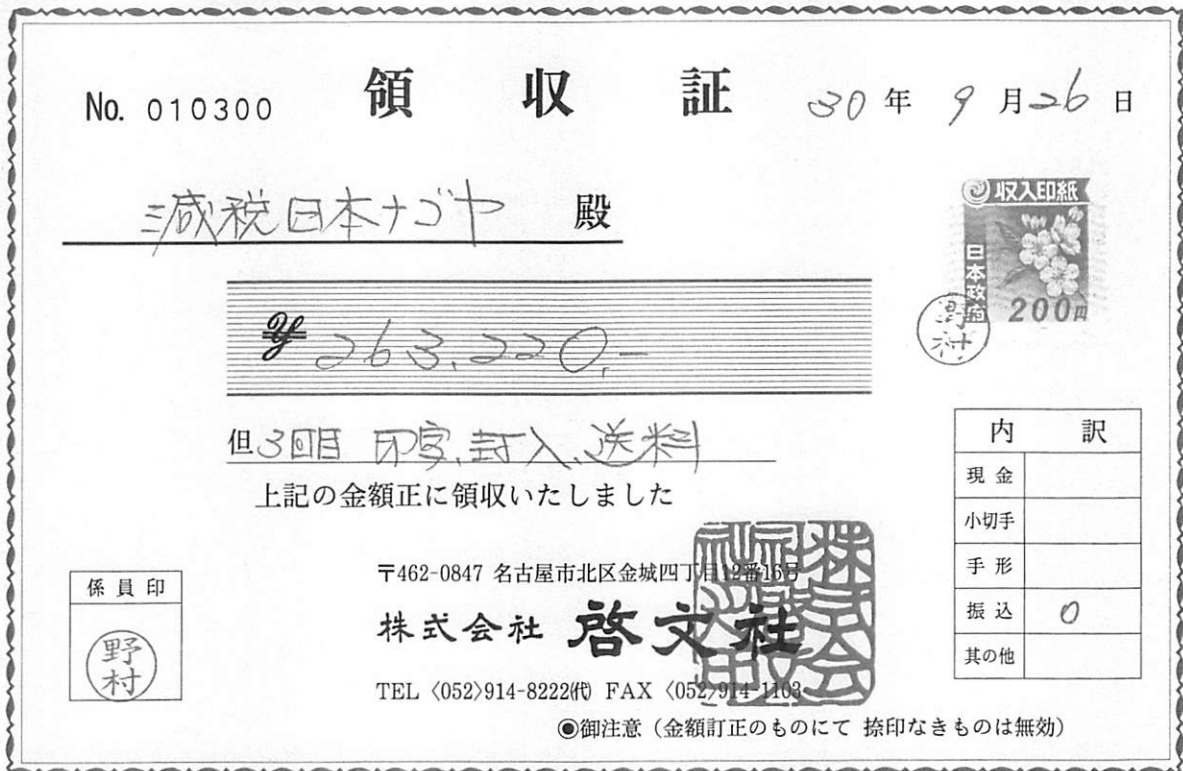 No. 010300
領収証
30年9月26日
減税日本ナゴヤ 殿
収入印紙
日本政府
200円
野村
¥263,220,-
但3回目 印字、封入、送料
上記の金額正に領収いたしました
内訳
現金
小切手
手形
振込 0
其の他
係員印
野村
〒462-0847 名古屋市北区金城四丁目12番16号
株式会社 啓文社
TEL〈052〉914-8222㈹ FAX〈052〉914-1103
◉御注意(金額訂正のものにて 捺印なきものは無効)